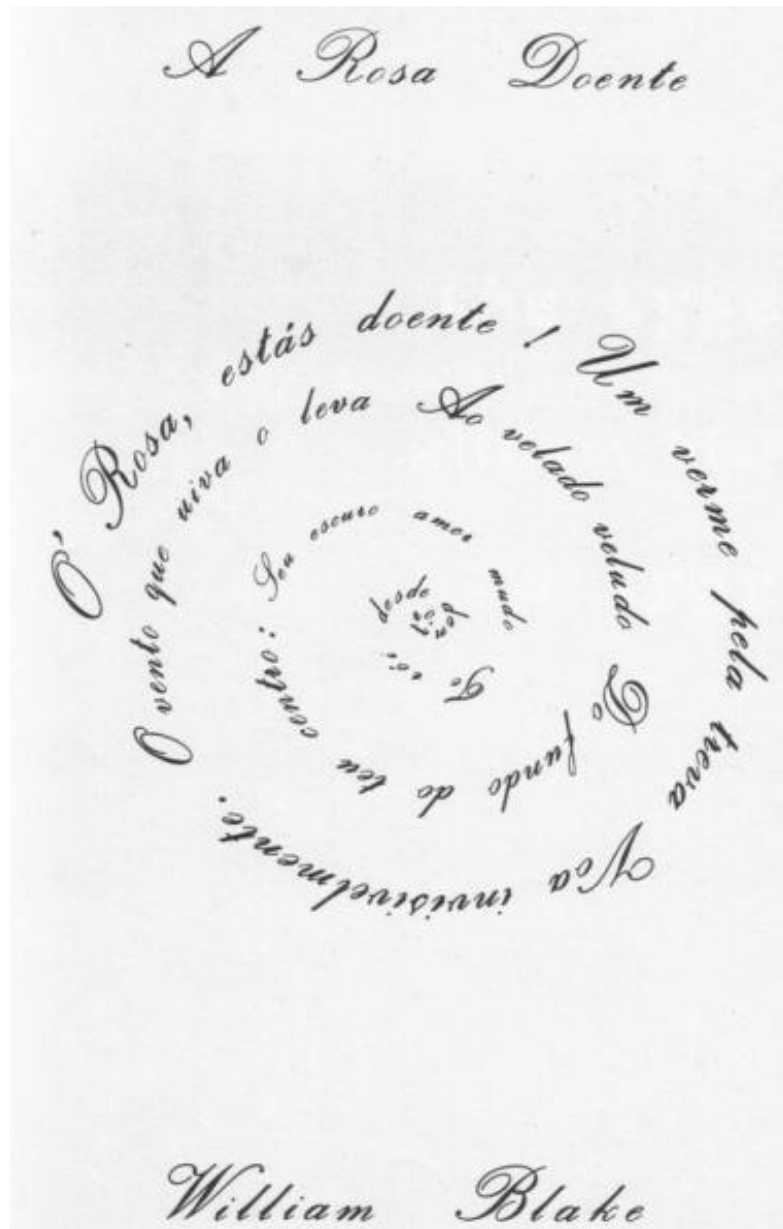 A Rosa Doente
Ó Rosa, estás doente! Um verme pela treva Voa invisivelmente.
O vento que uiva o leva Ao velado veludo Do fundo do teu centro:
Seu escuro amor mudo Te rói desde dentro
William Blake